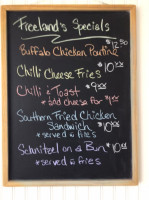 Freeland's Specials
Buffalo Chicken Poutine
$12.50
Chilli Cheese Fries $10.00
Chilli & Toast $9.00
* add cheese for $1.00
Southern Fried Chicken
Sandwich $10.00
* served c fries
Schnitzel on a Bun $10.00
* served c fries